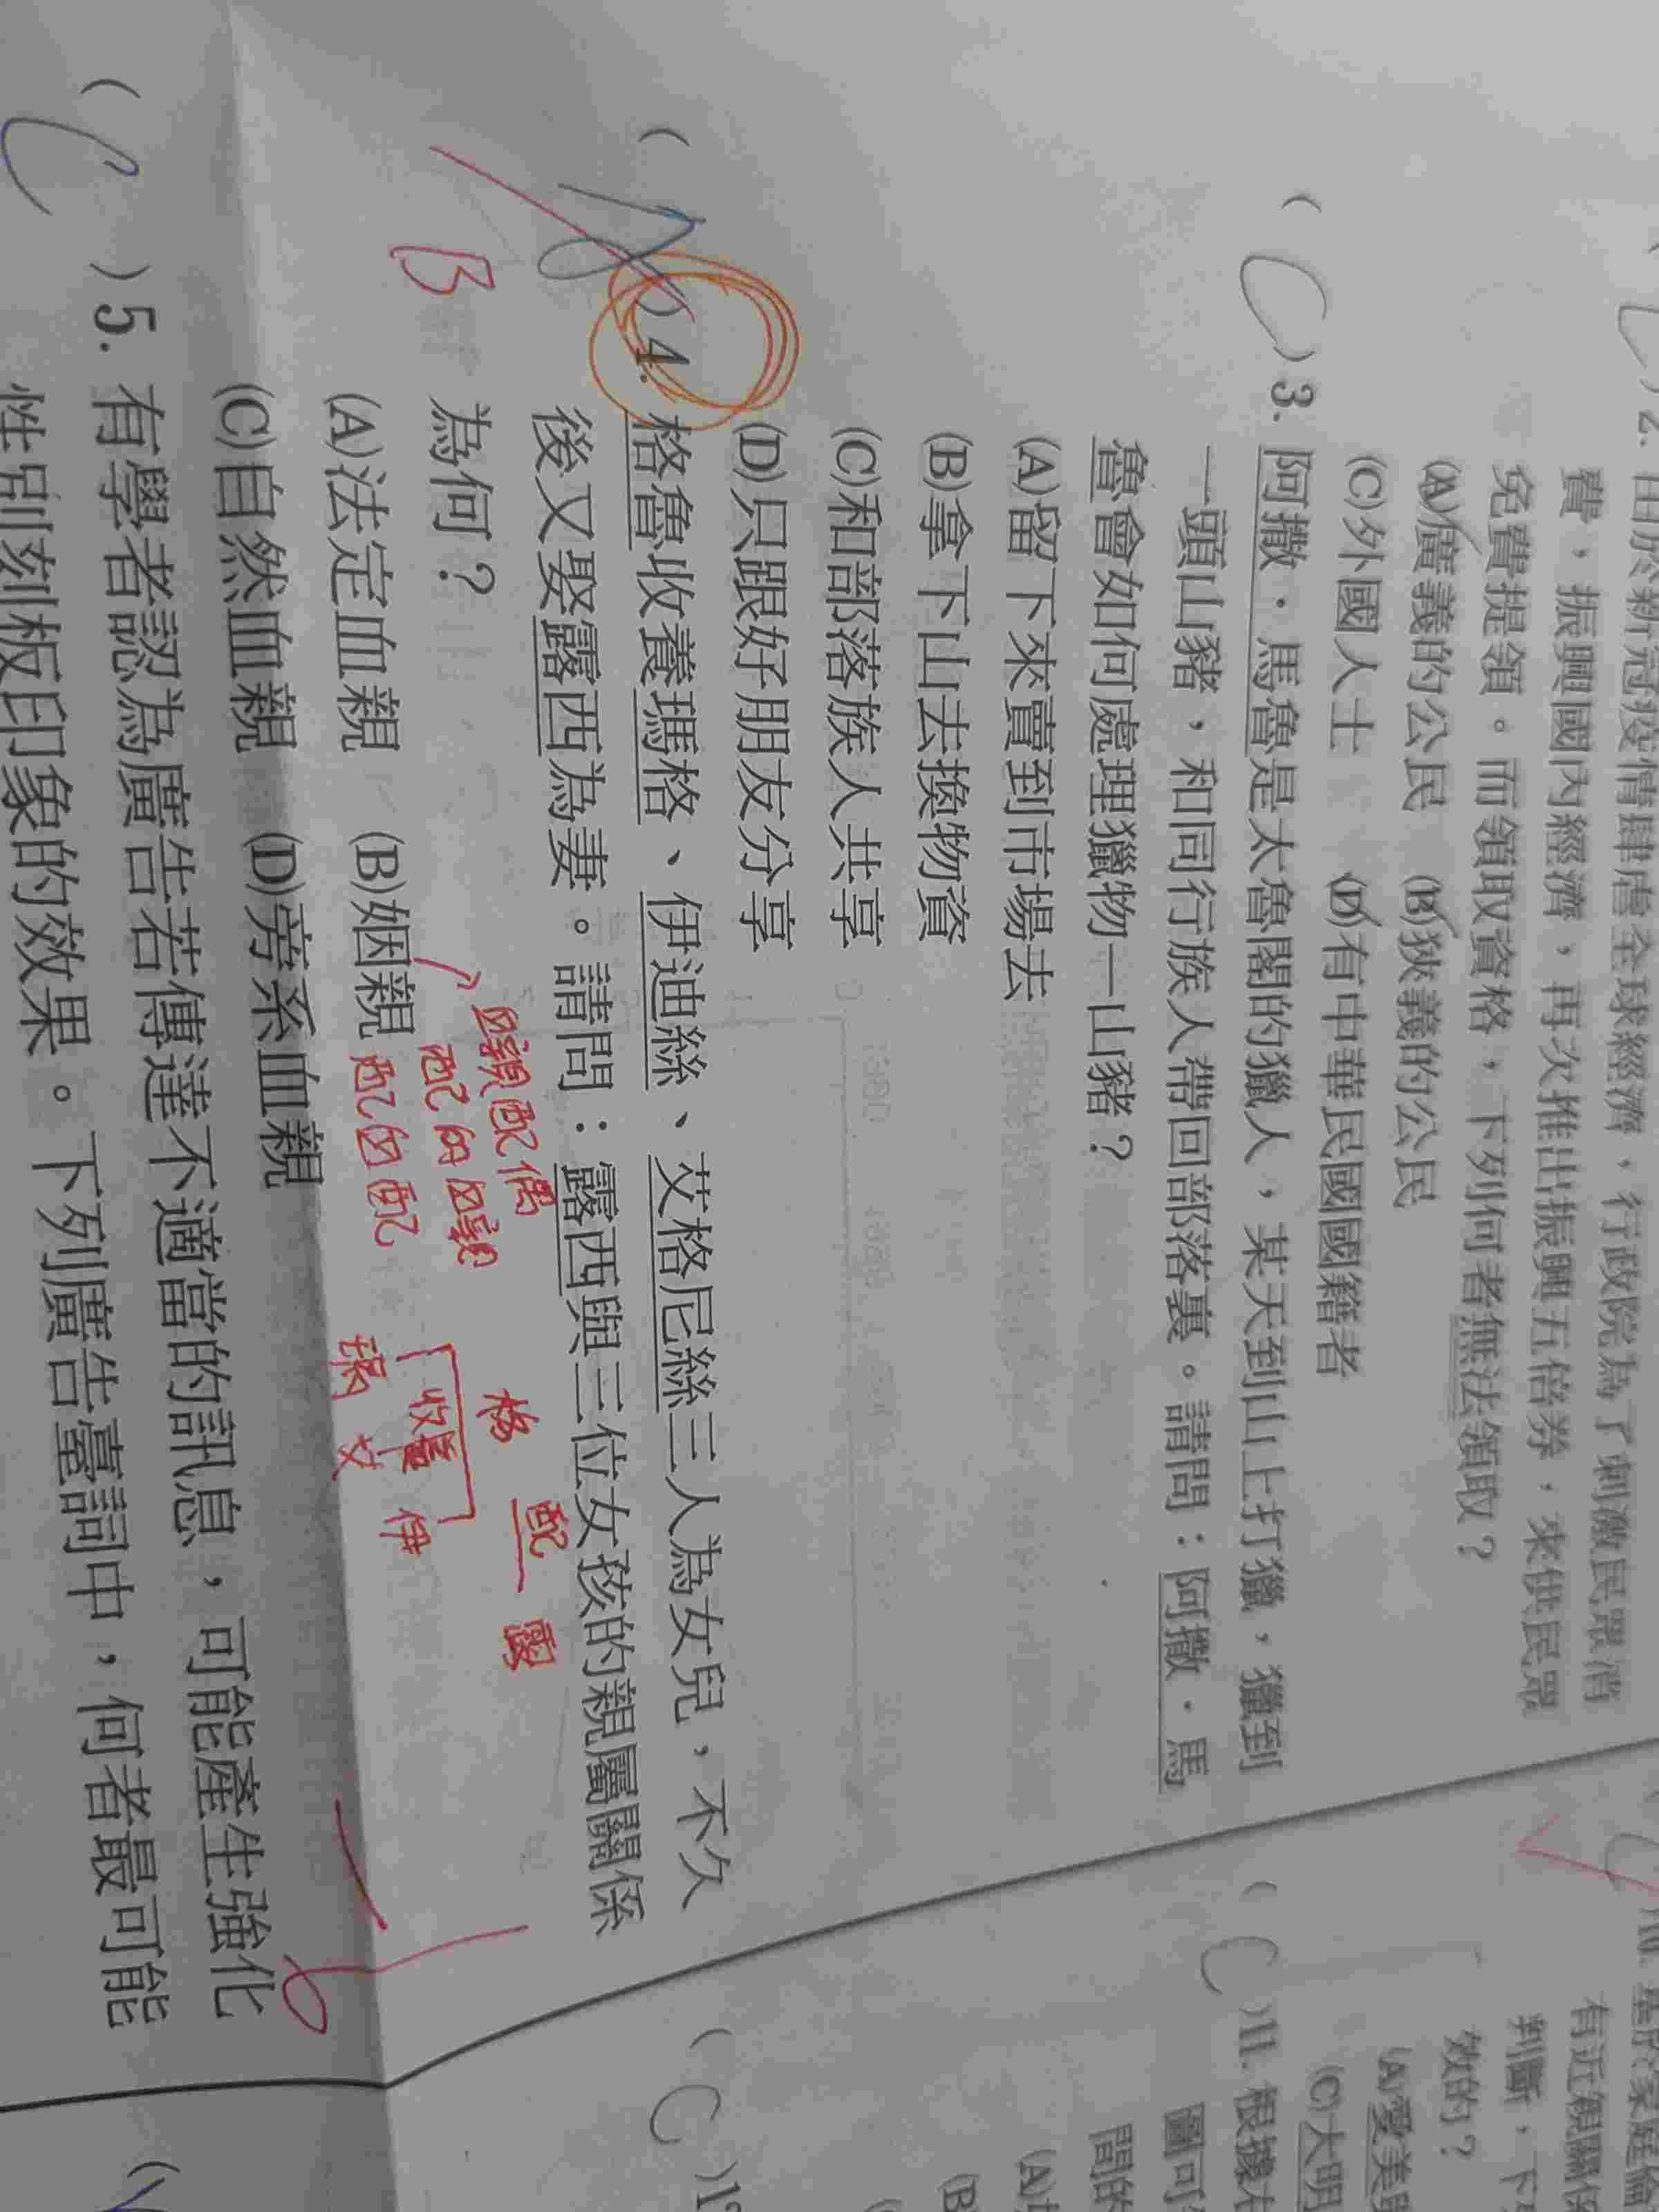 2. 由於新冠疫情肆虐全球經濟，行政院為了刺激民眾消
費，振興國內經濟，再次推出振興五倍券，來供民眾
免費提領。而領取資格，下列何者無法領取？
(A)廣義的公民 (B)狹義的公民
(C)外國人士 (D)有中華民國國籍者
( C )3. 阿撒‧馬魯是太魯閣的獵人，某天到山上打獵，獵到
一頭山豬，和同行族人帶回部落裏。請問：阿撒‧馬
魯會如何處理獵物—山豬？
(A)留下來賣到市場去
(B)拿下山去換物資
(C)和部落族人共享
(D)只跟好朋友分享
( )4. 格魯收養瑪格、伊迪絲、艾格尼絲三人為女兒，不久
後又娶露西為妻。請問：露西與三位女孩的親屬關係
為何？
B
(A)法定血親 (B)姻親
(C)自然血親 (D)旁系血親
血親配偶
配的血親
配血配
格 配 露
收養
瑪 艾 伊
( C )5. 有學者認為廣告若傳達不適當的訊息，可能產生強化
性別刻板印象的效果。下列廣告臺詞中，何者最可能
有近親關係
判斷，下
效的？
(A)愛美
(C)大明
( C )11. 根據
圖可
間的
(A)
(B)
( C )1